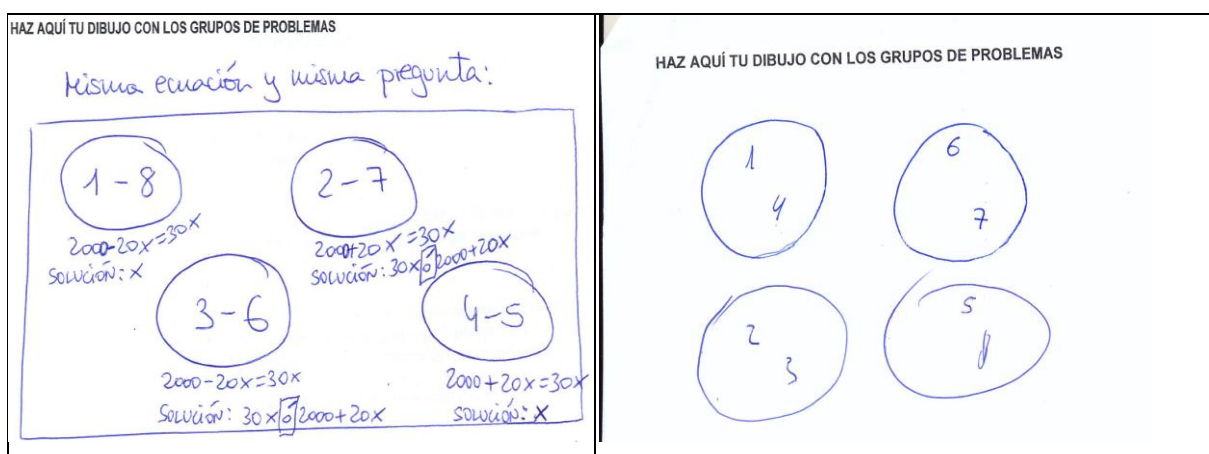 HAZ AQUÍ TU DIBUJO CON LOS GRUPOS DE PROBLEMAS
Misma ecuación y misma pregunta:
1-8
2000-20x=30x
SOLUCIÓN: x
2-7
2000+20x=30x
SOLUCIÓN: 30x ó 2000+20x
3-6
2000-20x=30x
SOLUCIÓN: 30x ó 2000+20x
4-5
2000+20x=30x
SOLUCIÓN: x
HAZ AQUÍ TU DIBUJO CON LOS GRUPOS DE PROBLEMAS
1
4
6
7
2
3
5
8